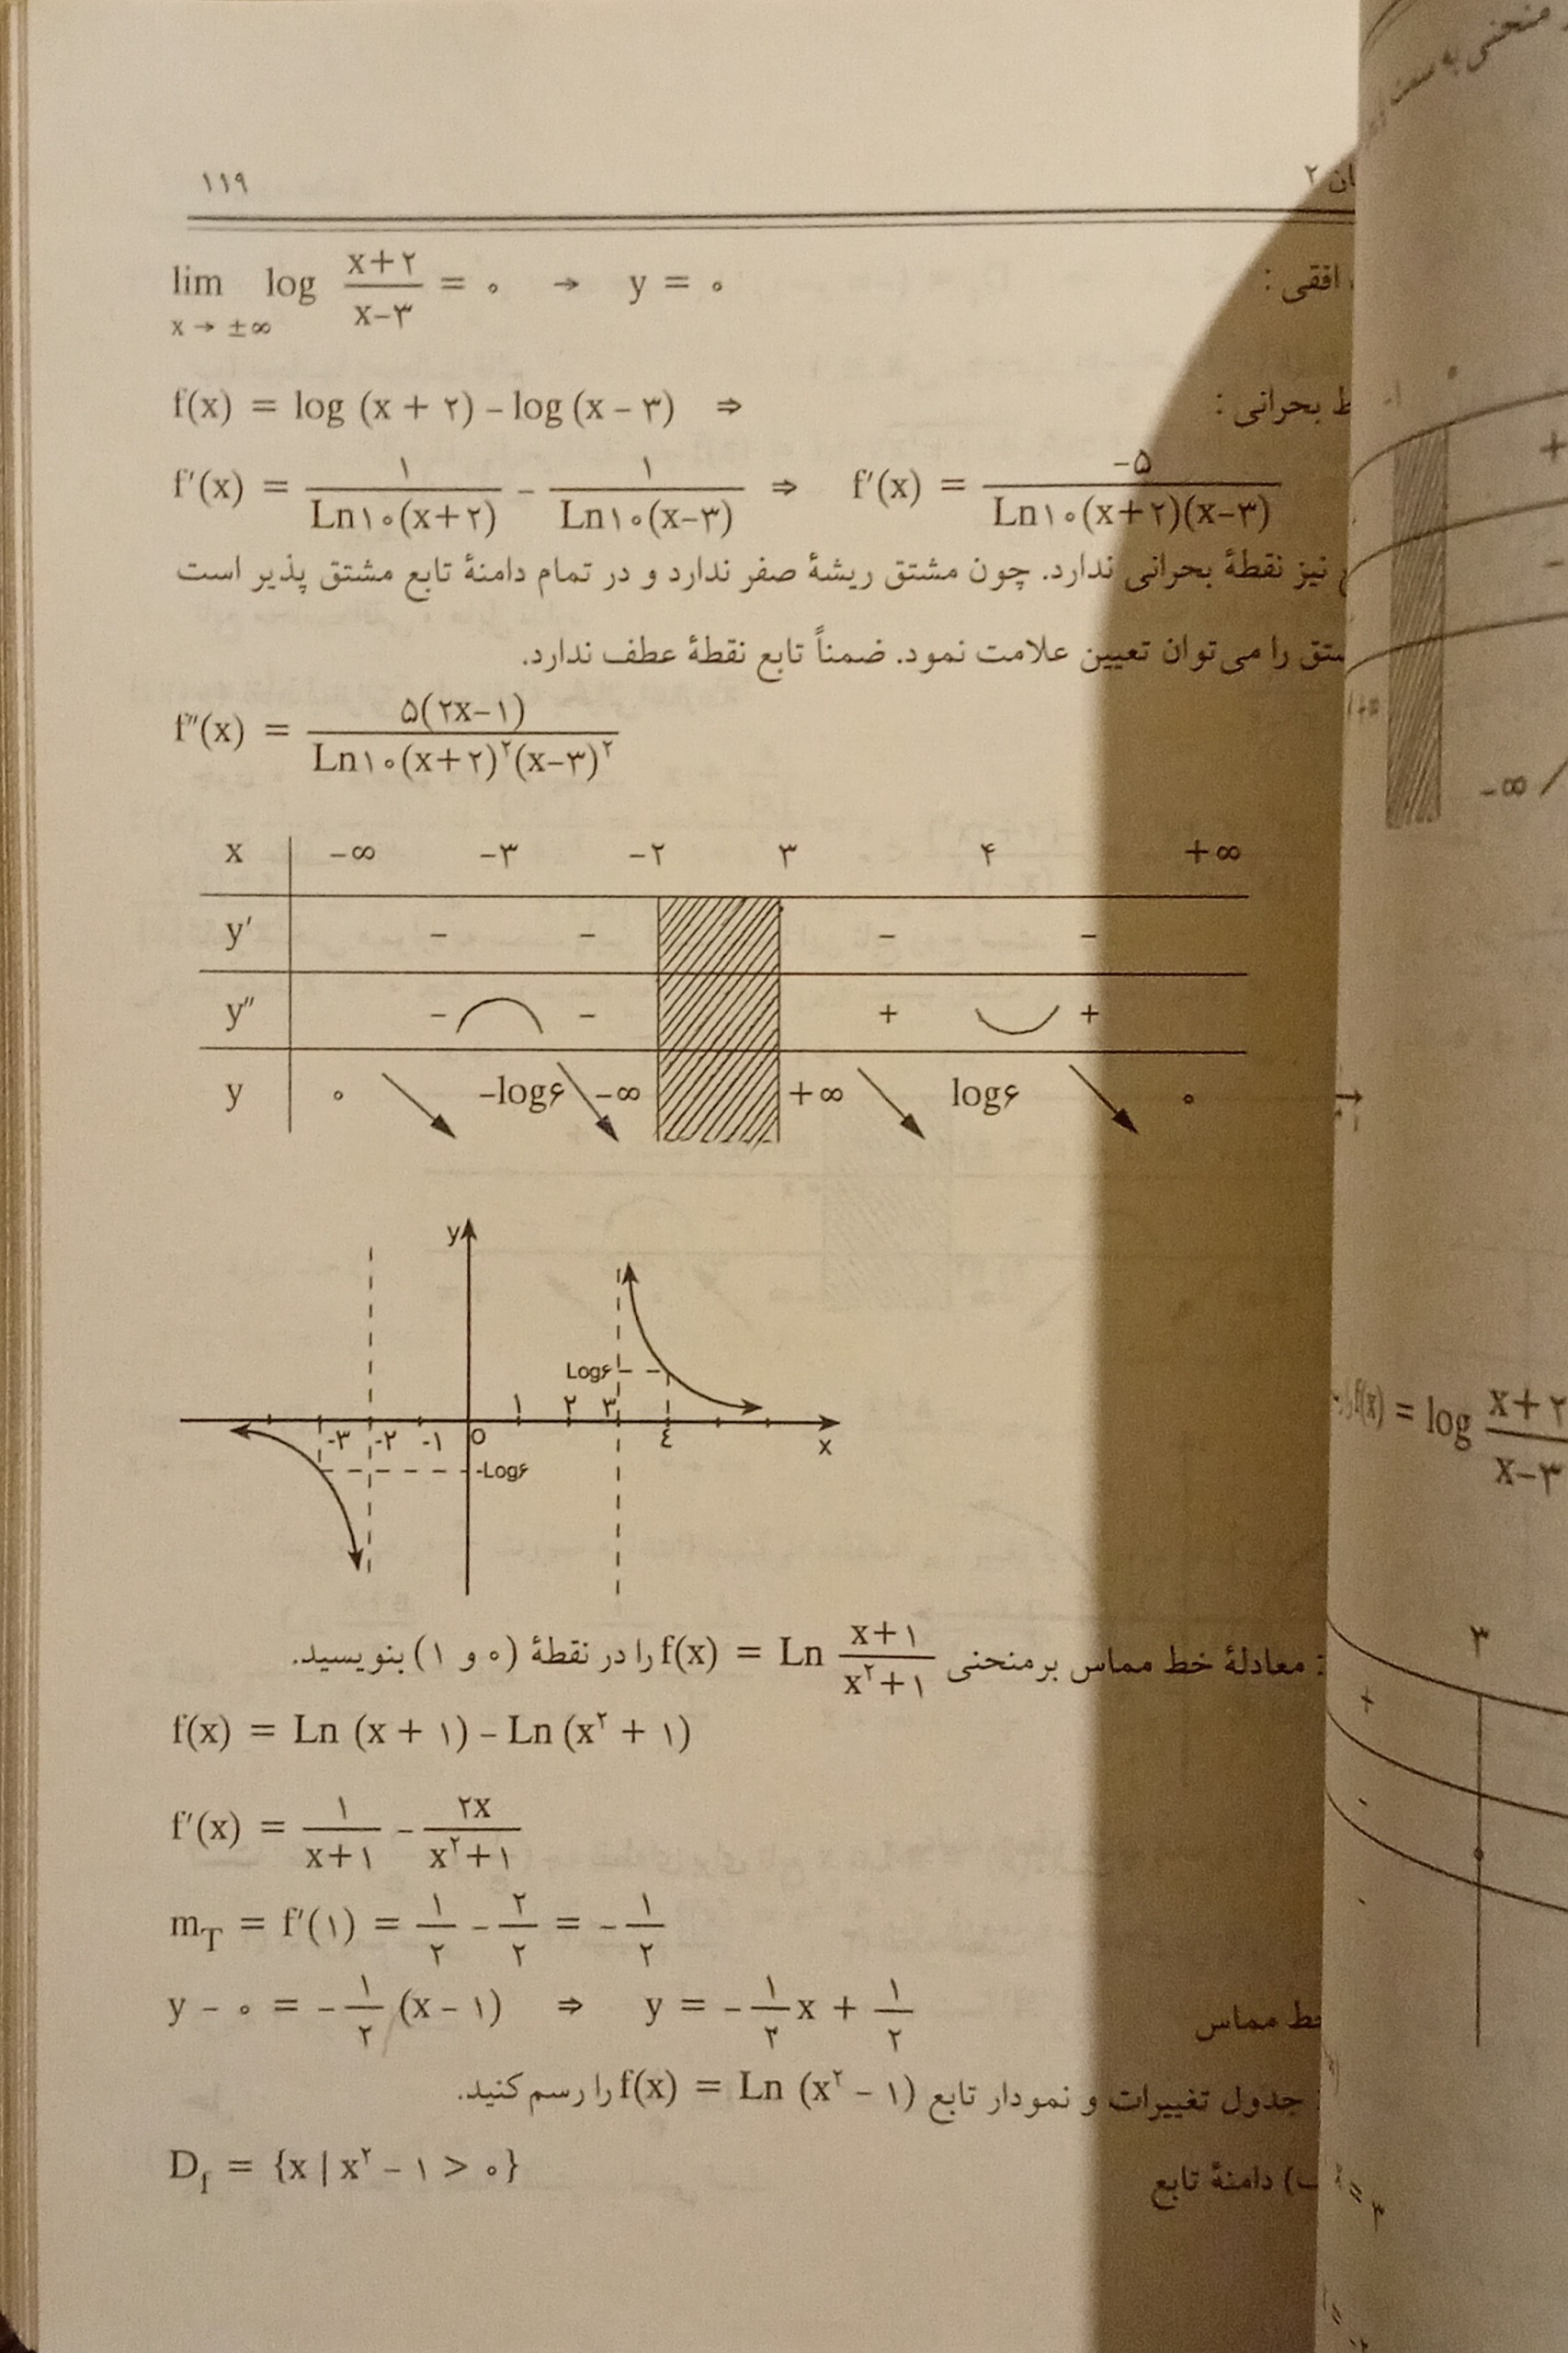 ۱۱۹
lim log x+۲ / x-۳ = ۰ → y = ۰
x → ±∞
افقی :
f(x) = log (x + ۲) – log (x – ۳) ⇒
بحرانی :
f′(x) = ۱ / Ln۱۰(x+۲) – ۱ / Ln۱۰(x-۳) ⇒ f′(x) = -۵ / Ln۱۰(x+۲)(x-۳)
نیز نقطهٔ بحرانی ندارد. چون مشتق ریشهٔ صفر ندارد و در تمام دامنهٔ تابع مشتق پذیر است
را می‌توان تعیین علامت نمود. ضمناً تابع نقطهٔ عطف ندارد.
f″(x) = ۵(۲x-۱) / Ln۱۰(x+۲)²(x-۳)²
x –∞ –۳ –۲ ۳ ۴ +∞
y′ – – – –
y″ – – + +
y ۰ –log۶ –∞ +∞ log۶ ۰
y
Log۶
۱ ۲ ۳
-۳ -۲ -۱ O ٤ x
-Log۶
: معادلهٔ خط مماس بر منحنی f(x) = Ln x+۱ / x²+۱ را در نقطهٔ (۰ و ۱) بنویسید.
f(x) = Ln (x + ۱) – Ln (x² + ۱)
f′(x) = ۱ / x+۱ – ۲x / x²+۱
m_T = f′(۱) = ۱/۲ – ۲/۲ = – ۱/۲
y – ۰ = – ۱/۲ (x – ۱) ⇒ y = – ۱/۲ x + ۱/۲
مماس
: جدول تغییرات و نمودار تابع f(x) = Ln (x² – ۱) را رسم کنید.
دامنهٔ تابع
D_f = {x | x² – ۱ > ۰}
منحنی به سمت
+
–
–∞
f(x) = log x+۲ / x-۳
۳
+
-